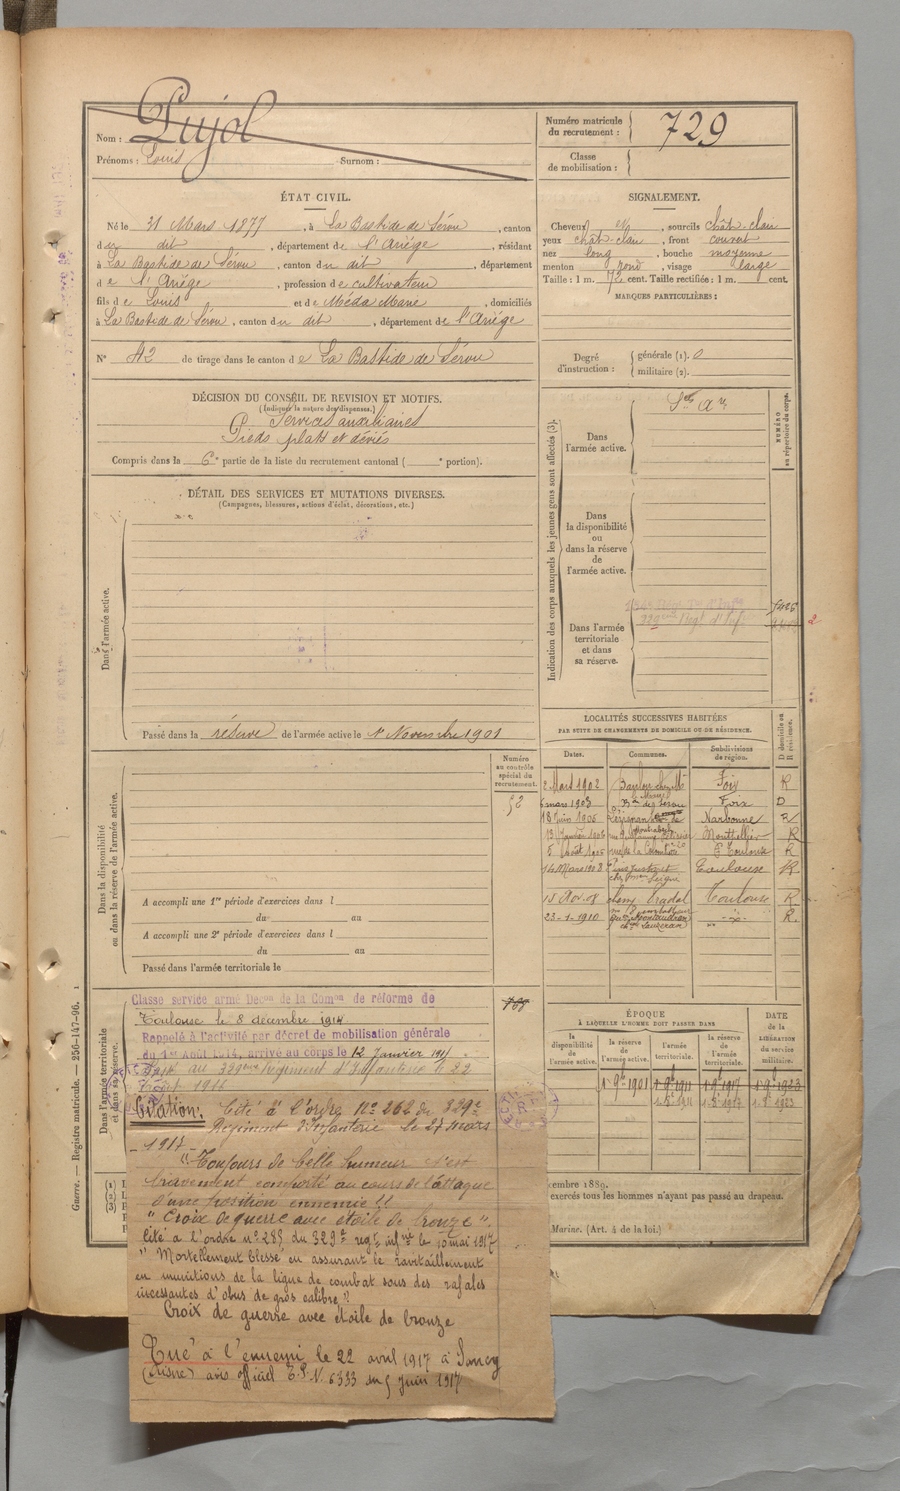 Nom : Pujol
Prénoms : Louis Surnom :
Numéro matricule du recrutement : 729
Classe de mobilisation :
ÉTAT CIVIL.
Né le 31 Mars 1877, à La Bastide de Sérou, canton
du dit, département de l'Ariège, résidant
à La Bastide de Sérou, canton du dit, département
de l'Ariège, profession de cultivateur
fils de Louis et de Méda Marie, domiciliés
à La Bastide de Sérou, canton du dit, département de l'Ariège
N° 42 de tirage dans le canton de La Bastide de Sérou
SIGNALEMENT.
Cheveux et, sourcils chât-clair
yeux chât-clair, front couvert
nez long, bouche moyenne
menton rond, visage large
Taille : 1 m. 72 cent. Taille rectifiée : 1 m. cent.
MARQUES PARTICULIÈRES :
Degré d'instruction : générale (1). 0
militaire (2).
DÉCISION DU CONSEIL DE REVISION ET MOTIFS.
(Indiquer la nature des dispenses.)
Services auxiliaires
Pieds plats et déviés
Compris dans la 6e partie de la liste du recrutement cantonal ( e portion).
DÉTAIL DES SERVICES ET MUTATIONS DIVERSES.
(Campagnes, blessures, actions d'éclat, décorations, etc.)
Dans l'armée active.
Passé dans la réserve de l'armée active le 1er Novembre 1901
Indication des corps auxquels les jeunes gens sont affectés (3).
NUMÉRO au répertoire du corps.
Dans l'armée active.
Dans la disponibilité ou dans la réserve de l'armée active.
Dans l'armée territoriale et dans sa réserve.
329ème Régt d'Inf.
LOCALITÉS SUCCESSIVES HABITÉES
PAR SUITE DE CHANGEMENTS DE DOMICILE OU DE RÉSIDENCE.
Dates. Communes. Subdivisions de région. D domicile ou R résidence.
2 Mars 1902 Foix R
6 mars 1903 Foix D
18 Juin 1905 Lézignan Narbonne R
13 Janvier 1906 Montpellier R
5 Août 1906 Toulouse R
14 Mars 1908 Toulouse R
15 Nov. 08 Toulouse R
23-1-1910 R.
Dans la disponibilité ou dans la réserve de l'armée active.
Numéro au contrôle spécial du recrutement.
52
A accompli une 1re période d'exercices dans l
du au
A accompli une 2e période d'exercices dans l
du au
Passé dans l'armée territoriale le
Dans l'armée territoriale et dans sa réserve.
Classe service armé Décon de la Comon de réforme de
Toulouse le 8 décembre 1914
Rappelé à l'activité par décret de mobilisation générale
du 1er Août 1914, arrivé au corps le 12 Janvier 1915
Passé au 329ème Régiment d'Infanterie le 22
Août 1916
Citation. Cité à l'ordre N° 262 du 329e
Régiment d'Infanterie le 27 mars
1917
"Toujours de belle humeur s'est
bravement comporté au cours de l'attaque
d'une position ennemie"
"Croix de guerre avec étoile de bronze".
Cité à l'ordre n° 285 du 329e regt infrie le 10 mai 1917
"Mortellement blessé en assurant le ravitaillement
en munitions de la ligne de combat sous des rafales
incessantes d'obus de gros calibre"
Croix de guerre avec étoile de bronze
Tué à l'ennemi le 22 avril 1917 à Sancy
(Aisne) avis officiel E.P. N. 6333 du 5 Juin 1917
ÉPOQUE
À LAQUELLE L'HOMME DOIT PASSER DANS
la disponibilité de l'armée active.
la réserve de l'armée active.
l'armée territoriale.
la réserve de l'armée territoriale.
DATE de la LIBÉRATION du service militaire.
1er 9bre 1901 1er 9bre 1911 1er 9bre 1917 1er 9bre 1923
cembre 1889.
exercés tous les hommes n'ayant pas passé au drapeau.
Marine. (Art. 4 de la loi.)
Guerre. — Registre matricule. — 256-147-96.